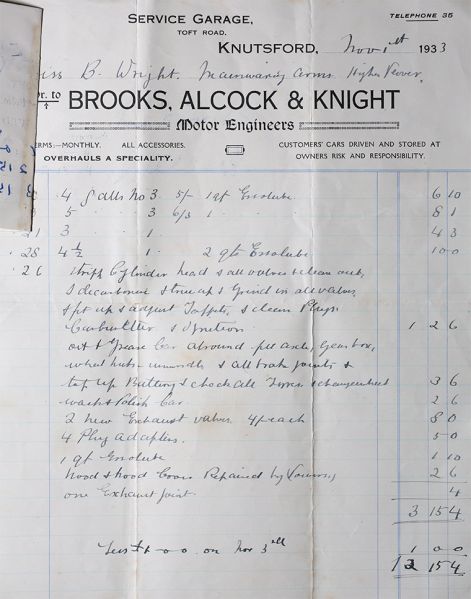 SERVICE GARAGE,
TOFT ROAD,
TELEPHONE 35
KNUTSFORD, Nov 1st 1933
iss B. Wright. Mainwaring Arms Higher Peover.
Dr. to BROOKS, ALCOCK & KNIGHT
Motor Engineers
ERMS:—MONTHLY. ALL ACCESSORIES. CUSTOMERS' CARS DRIVEN AND STORED AT
OVERHAULS A SPECIALITY. OWNERS RISK AND RESPONSIBILITY.
4 galls No 3 5/- 1 qt Essolube 6 10
5 3 6/3 1 8 1
21 3 1 4 3
28 4½ 1 2 qts Essolube 10 0
26 strip Cylinder head & all valves & clean out,
& decarbonise & true up & Grind in all valves,
& fit up & adjust Tappets & clean Plugs
Carburetter & Ignition 1 2 6
oil & Grease Car all round fill axle, Gear box,
wheel hubs & all brake joints &
top up Battery & check all Tyres & change wheel 3 6
wash & Polish Car. 2 6
2 new Exhaust valves 4/- each 8 0
4 Plug Adapters. 5 0
1 qt Essolube 1 10
hood & hood Cover Repaired by 2 6
one Exhaust joint. 4
3 15 4
Less £1-0-0 on Nov 3rd 1 0 0
2 15 4